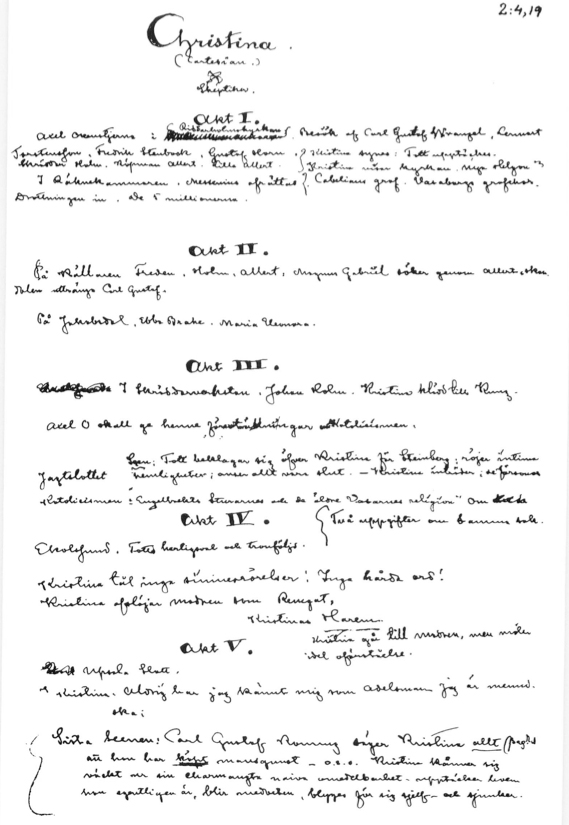 2:4,19
Christina.
(Cartesian.)
Skeptiker.
Akt I.
Axel Oxenstjerna : Riddarholmskyrkan Besök af Carl Gustaf Wrangel, Lennart
Torstensson, Fredrik Stenbock, Gustaf Horn. Kristina synes; Tott upptäckes.
Holm, Allert. Lilla Allert. Kristina inser kyrkan,
I Räknekammaren. Messenius afrättas Vasaborgs grefskap.
Drottningen in. de 5 millionerna.
Akt II.
På Källaren Freden. Holm, Allert, Magnus Gabriel söker genom Allert,
Holm uttränga Carl Gustaf.
På Jakobsdal, Ebba Brahe. Maria Eleonora.
Akt III.
I Skräddareverkstan. Johan Holm. Kristina klädd till Kung.
Axel O skall ge henne föreställningar Katolicismen.
Scen; Tott beklagar sig öfver Kristina för Steinberg; röjer intima
Jagtslottet hemligheter; anser allt vara slut. – Kristina inträder;
Katolicismen: Engelbrekts Sturarnes och de äldre Vasarnes religion" Om
Akt IV. Två uppgifter om samma sak.
Ekolsund. Totts hertigoval och tronföljd.
Kristina tål inga sinnesrörelser! Inga hårda ord!
Kristina afslöjar modren som Renegat,
Kristinas Harem.
Akt V. Kristina går till modren, men möter
idel oförståelse.
Upsala Slott.
Kristina. Aldrig har jag känt mig som adelsman jag är menni-
ska;
Sista Scenen: Carl Gustaf Roming säger Kristina allt
att hon har köpt mansgunst – o.s.v. Kristina känner sig
väckt ur sin naiva omedelbarhet. upptäcker hvem
hon egentligen är, blir medveten, blyges för sig sjelf – och sjunker.